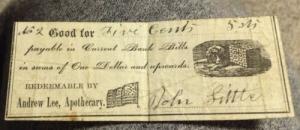 No 2 Good for Five Cents 5 cts
payable in Current Bank Bills
in sums of One Dollar and upwards.
REDEEMABLE BY
Andrew Lee, Apothecary.
John Little